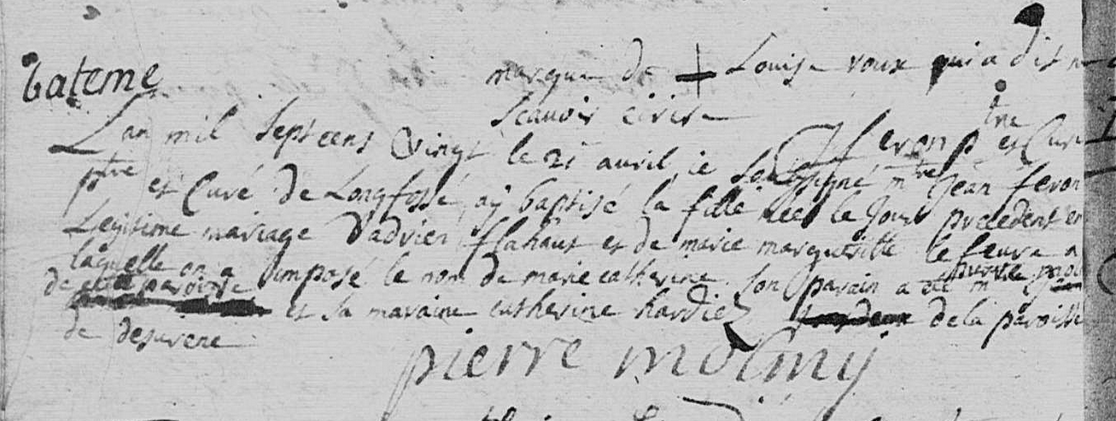 marque de + Louise roux qui a dit ne
scavoir ecrire
J feron ptre et Curé
bateme
Lan mil Sept cens Vingt le 21 avril je Soussigné mtre Jean feron
ptre et Curé de Longfossé ay baptisé la fille née le Jour precedent en
Legitime mariage Dadrien flahaut et de marie margueritte le feuvre a
laquelle on a imposé le nom de marie catherine. Son parain a été mtre pierre
de cette paroisse et sa maraine catherine hardiez de la paroisse
de desurene
pierre molmy